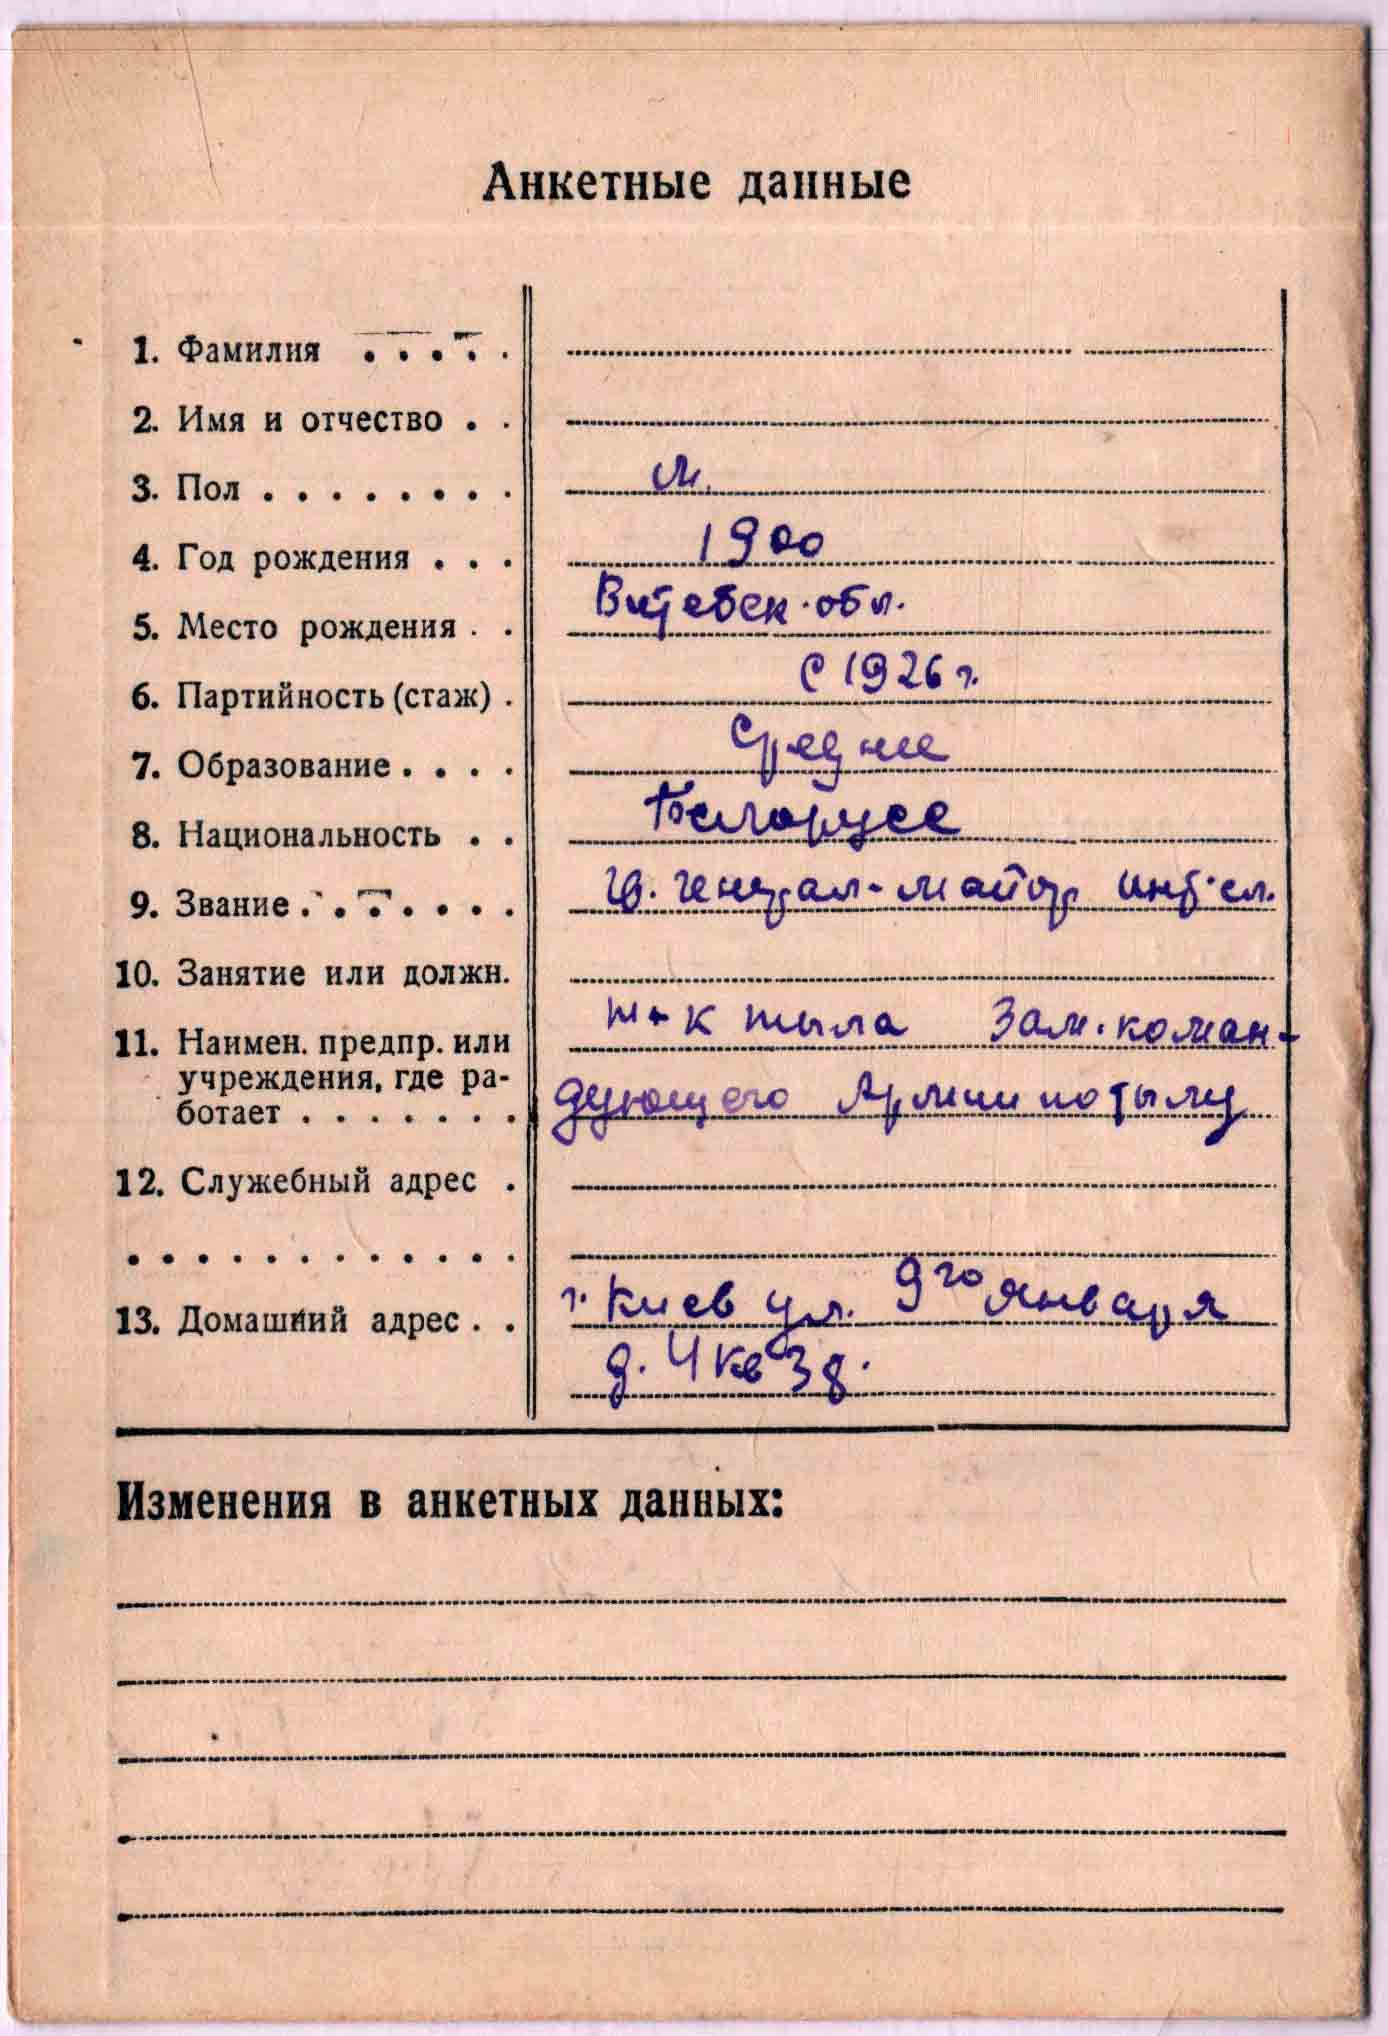 Анкетные данные
1. Фамилия . . . . .
2. Имя и отчество . .
3. Пол . . . . . . . . м.
4. Год рождения . . . 1900
5. Место рождения . . Витебск. обл.
6. Партийность (стаж) . с 1926 г.
7. Образование . . . . Среднее
8. Национальность . . Белорусс
9. Звание . . . . . . . гв. генерал-майор инт. сл.
10. Занятие или должн.
11. Наимен. предпр. или н-к тыла Зам. коман-
учреждения, где ра-
ботает . . . . . . . дующего Армии по тылу
12. Служебный адрес .
. . . . . . . . . . . .
13. Домашний адрес . . г. Киев ул. 9го Января
д. 4 кв 38.
Изменения в анкетных данных: